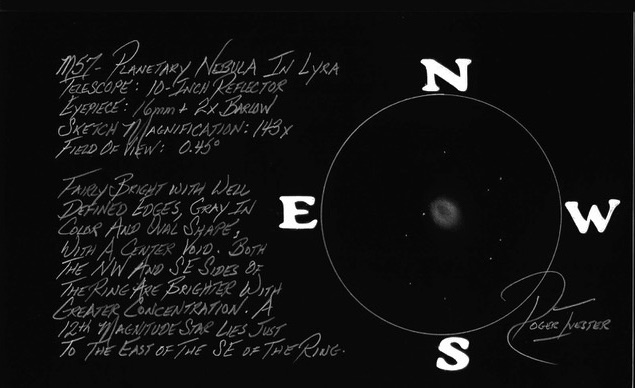 M57- PLANETARY NEBULA IN LYRA
TELESCOPE: 10-INCH REFLECTOR
EYEPIECE: 16mm + 2X BARLOW
SKETCH MAGNIFICATION: 143X
FIELD OF VIEW: 0.45°
FAIRLY BRIGHT WITH WELL
DEFINED EDGES, GRAY IN
COLOR AND OVAL SHAPE,
WITH A CENTER VOID. BOTH
THE NW AND SE SIDES OF
THE RING ARE BRIGHTER WITH
GREATER CONCENTRATION. A
12th MAGNITUDE STAR LIES JUST
TO THE EAST OF THE SE OF THE RING.
N
E
W
S
ROGER IVESTER